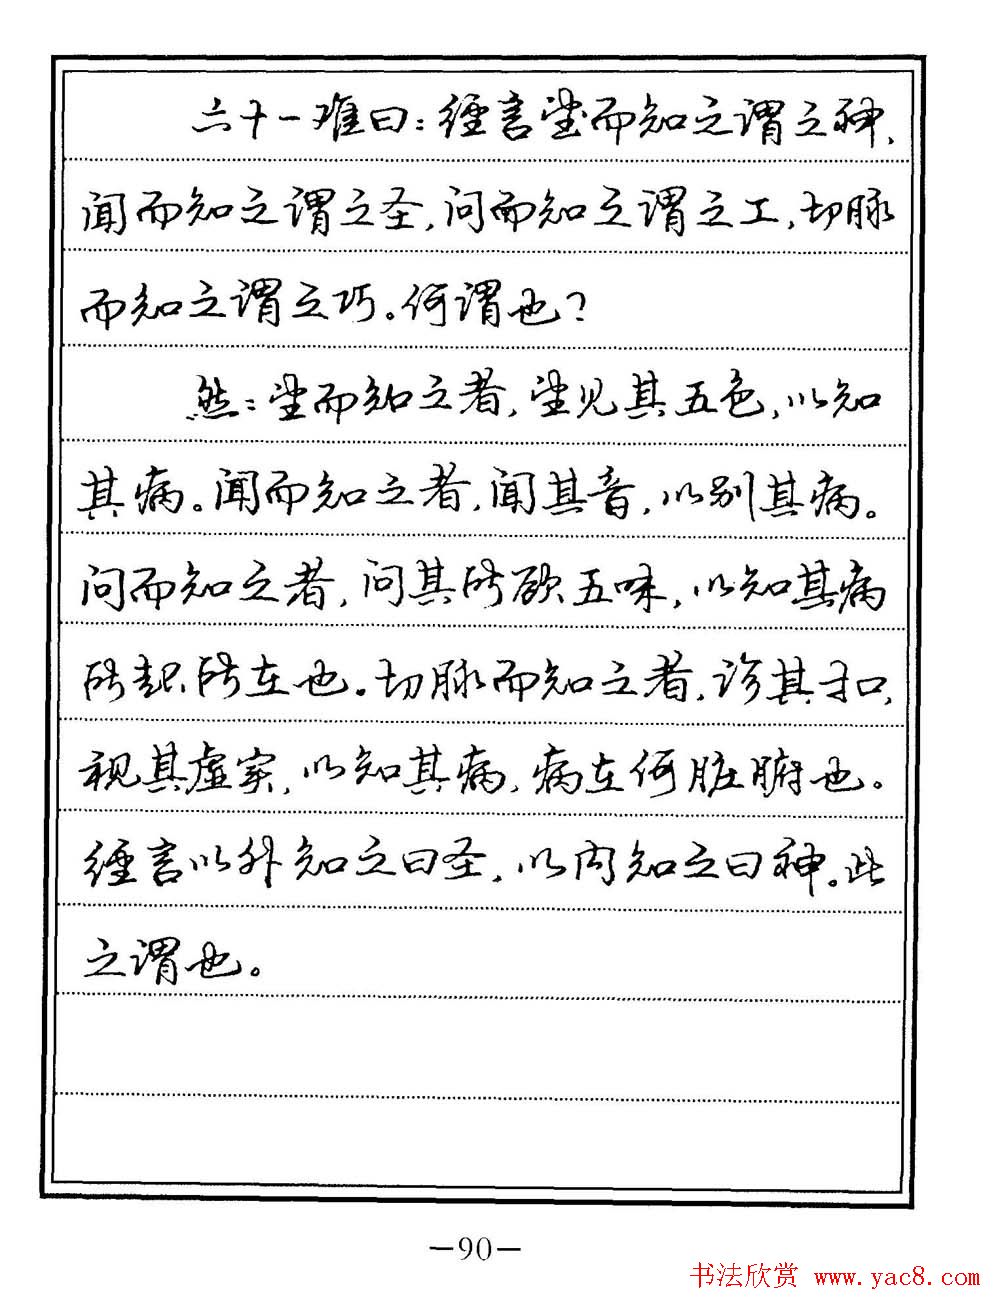 六十一难曰：经言望而知之谓之神，
闻而知之谓之圣，问而知之谓之工，切脉
而知之谓之巧。何谓也？
然：望而知之者，望见其五色，以知
其病。闻而知之者，闻其音，以别其病。
问而知之者，问其所欲五味，以知其病
所起所在也。切脉而知之者，诊其寸口，
视其虚实，以知其病，病在何脏腑也。
经言以外知之曰圣，以内知之曰神。此
之谓也。
—90—
书法欣赏 www.yac8.com